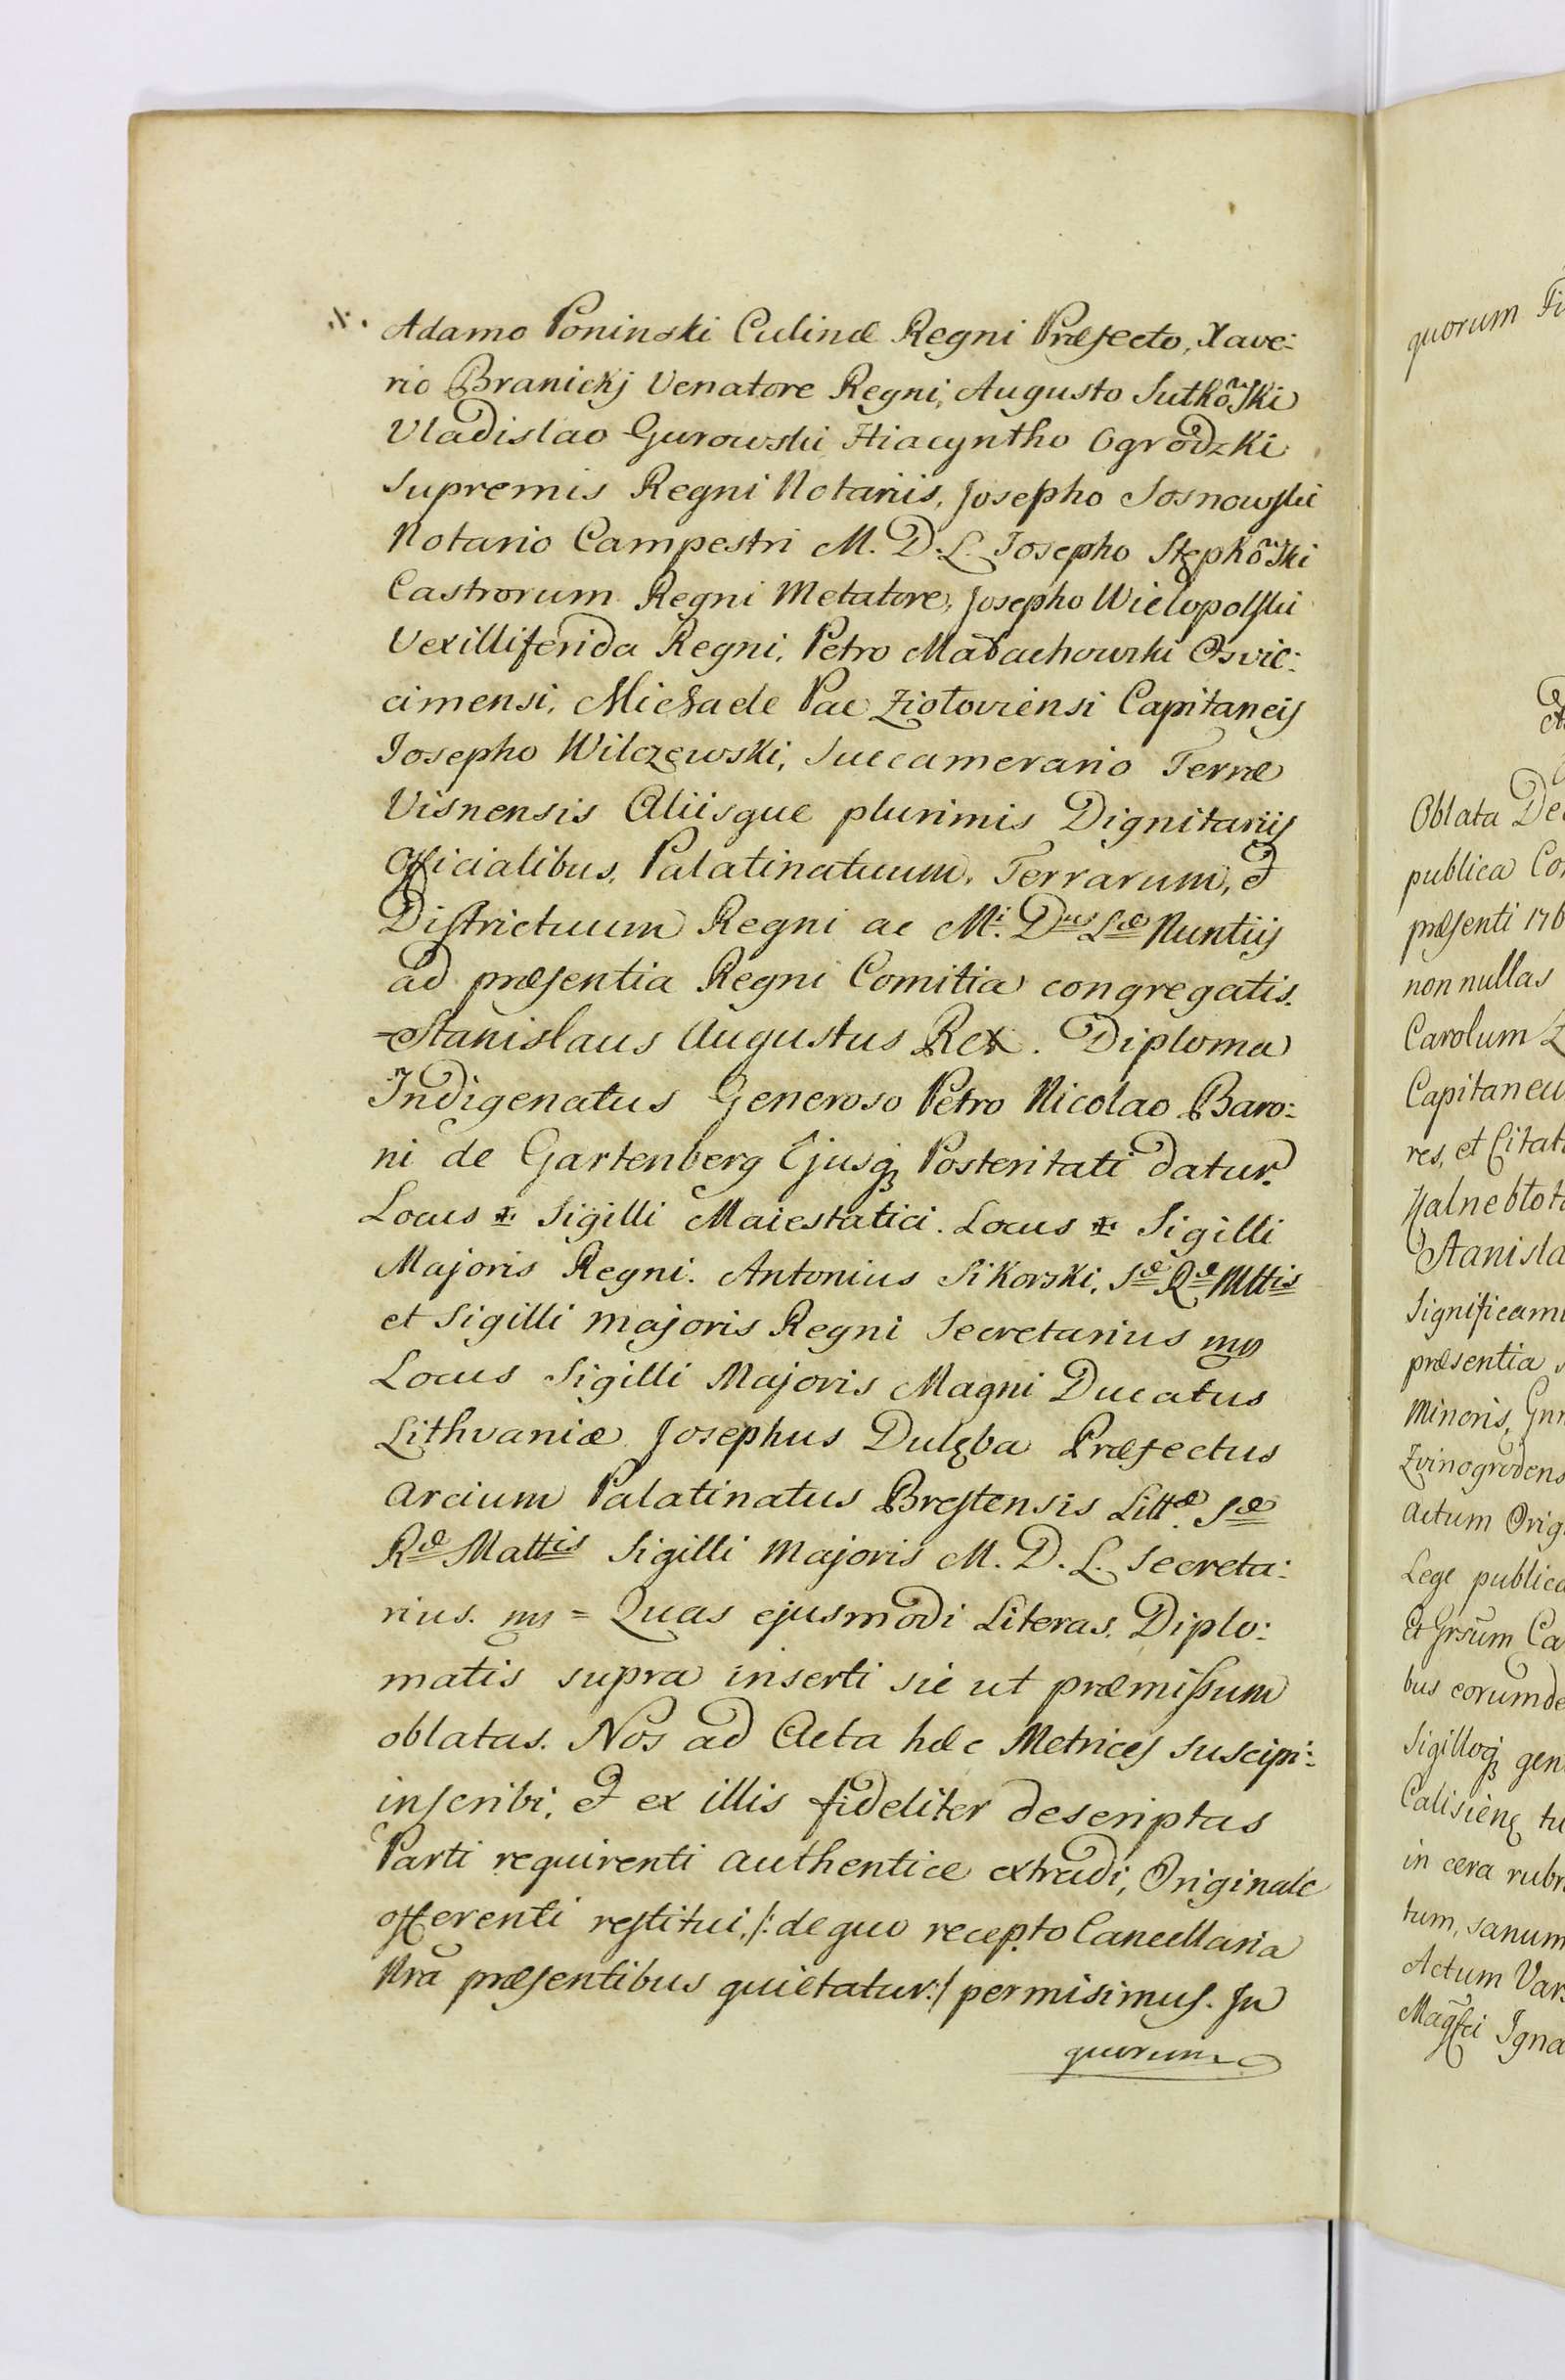 .x. Adamo Poninski Culinæ Regni Præfecto, Xave:
rio Branickj Venatore Regni, Augusto Sutkõski
Vladislao Gurowski Hiacyntho Ogrodzki
Supremis Regni Notariis, Josepho Sosnowski
Notario Campestri M. D. L. Josepho Stępkõski
Castrorum Regni Metatore, Josepho Wielopolski
Vexilliferida Regni, Petro Małachowski Osvie:
cimensi, Michaele Pac Ziołoviensi Capitaneis
Josepho Wilczewski, Succamerario Terræ
Visnensis Aliisque plurimis Dignitariis
Officialibus, Palatinatuum, Terrarum, et
Districtuum Regni ac Mi. Dus Læ Nuntiis
ad præsentia Regni Comitia congregatis.
=Stanislaus Augustus Rex. Diploma
Indigenatus Generoso Petro Nicolao Baro:
ni de Gartenberg Ejusq Posteritati datur.
Locus ☩ Sigilli Maiestatici. Locus ☩ Sigilli
Majoris Regni. Antonius Sikorski, Sæ Ræ Mttis
et Sigilli majoris Regni Secretarius mp
Locus Sigilli Majoris Magni Ducatus
Lithvaniæ Josephus Dulęba Præfectus
arcium Palatinatus Brestensis Littæ. Sæ
Ræ Mattis Sigilli Majoris M. D. L. Secreta:
rius. mp = Quas ejusmodi Literas. Diplo:
matis supra inserti sic ut præmissum
oblatas. Nos ad Acta hæc Metrices suscipi:
inscribi, et ex illis fideliter descriptas
Parti requirenti authentice extradi, Originale
offerenti restitui, /: de quo recepto Cancellaria
Nrã præsentibus quietatur :/ permisimus. In
quorum
quorum Fi
Oblata De
publica Co
præsenti 176
non nullas
Carolum
Capitaneu
res, et Citat
Halnebłot
Stanisla
Significam
præsentia
Minoris, Gnr
Zvinogrodens
actum Orig
Lege publica
et Grsũm Ca
bus eorumde
Sigilloq gen
Calisieñ tu
in cera rubr
tum, sanum
Actum Var
Magfci Igna